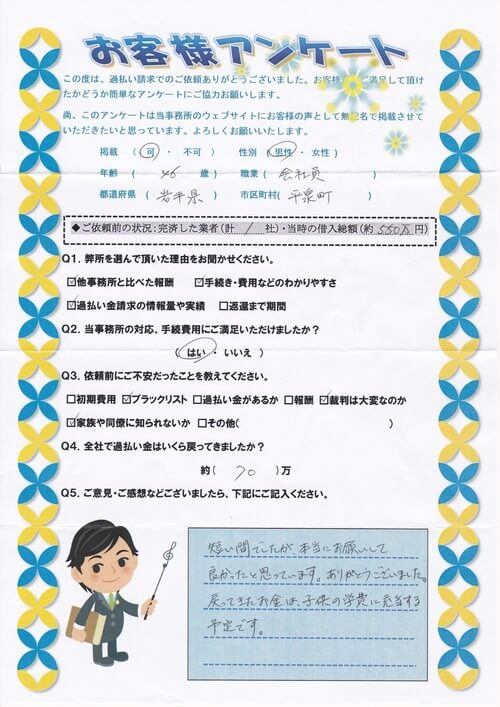 お客様アンケート
この度は、過払い請求でのご依頼ありがとうございました。お客様 ご満足して頂け
たかどうか簡単なアンケートにご協力お願いします。
尚、このアンケートは当事務所のウェブサイトにお客様の声として無記名で掲載させて
いただきたいと思っています。よろしくお願いいたします。
掲載 ( 可 ・ 不可 ) 性別 ( 男性 ・ 女性 )
年齢 ( 46 歳 ) 職業 ( 会社員 )
都道府県 ( 岩手県 ) 市区町村( 平泉町 )
◆ご依頼前の状況:完済した業者(計 1 社)・当時の借入総額(約 550万 円)
Q1. 弊所を選んで頂いた理由をお聞かせください。
☑他事務所と比べた報酬 ☑手続き・費用などのわかりやすさ
☑過払い金請求の情報量や実績 □返還まで期間
Q2. 当事務所の対応、手続費用にご満足いただけましたか?
( はい ・ いいえ )
Q3. 依頼前にご不安だったことを教えてください。
□初期費用 ☑ブラックリスト □過払い金があるか □報酬 ☑裁判は大変なのか
☑家族や同僚に知られないか □その他( )
Q4. 全社で過払い金はいくら戻ってきましたか?
約( 70 )万
Q5. ご意見・ご感想などございましたら、下記にご記入ください。
短い間でしたが、本当にお願いして
良かったと思っています。ありがとうございました。
戻ってきたお金は、子供の学費に充当する
予定です。